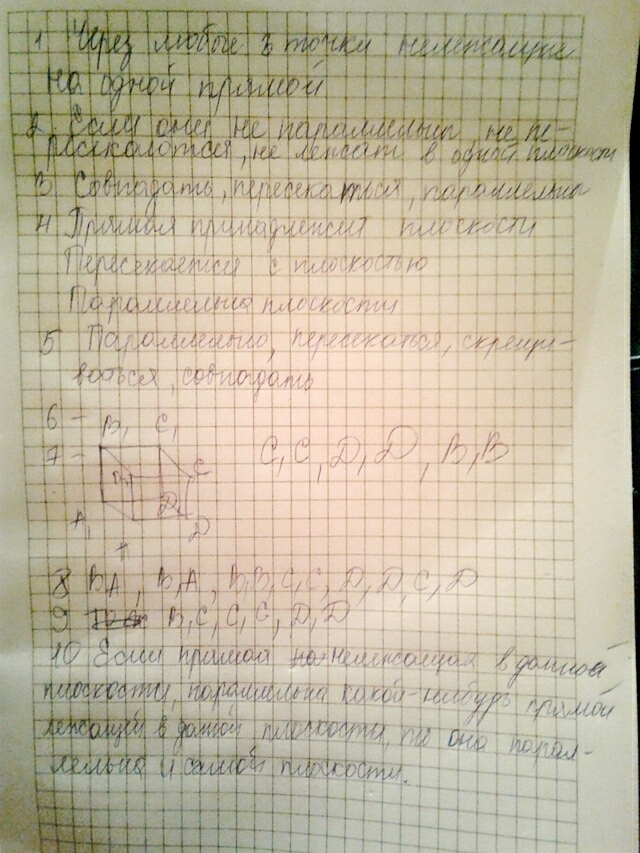 1 Через любые 3 точки нележащие
на одной прямой
2 Если они не параллельны, не пе-
ресекаются, не лежат в одной плоскости
3 Совпадать, пересекаться, параллельны
4 Прямая принадлежит плоскости
Пересекается с плоскостью
Параллельна плоскости
5 Параллельно, пересекаться, скрещи-
ваться, совпадать
6 -
B₁ C₁
7 - C₁C, D₁D, B₁B
C
D₁
A₁ D
8 BA, B₁A₁, B₁B, C₁C, D₁D, C₁D
9 B₁C₁, C₁C, D₁D
10 Если прямая нележащая в данной
плоскости, параллельна какой-нибудь прямой
лежащей в данной плоскости, то она парал-
лельна и самой плоскости.